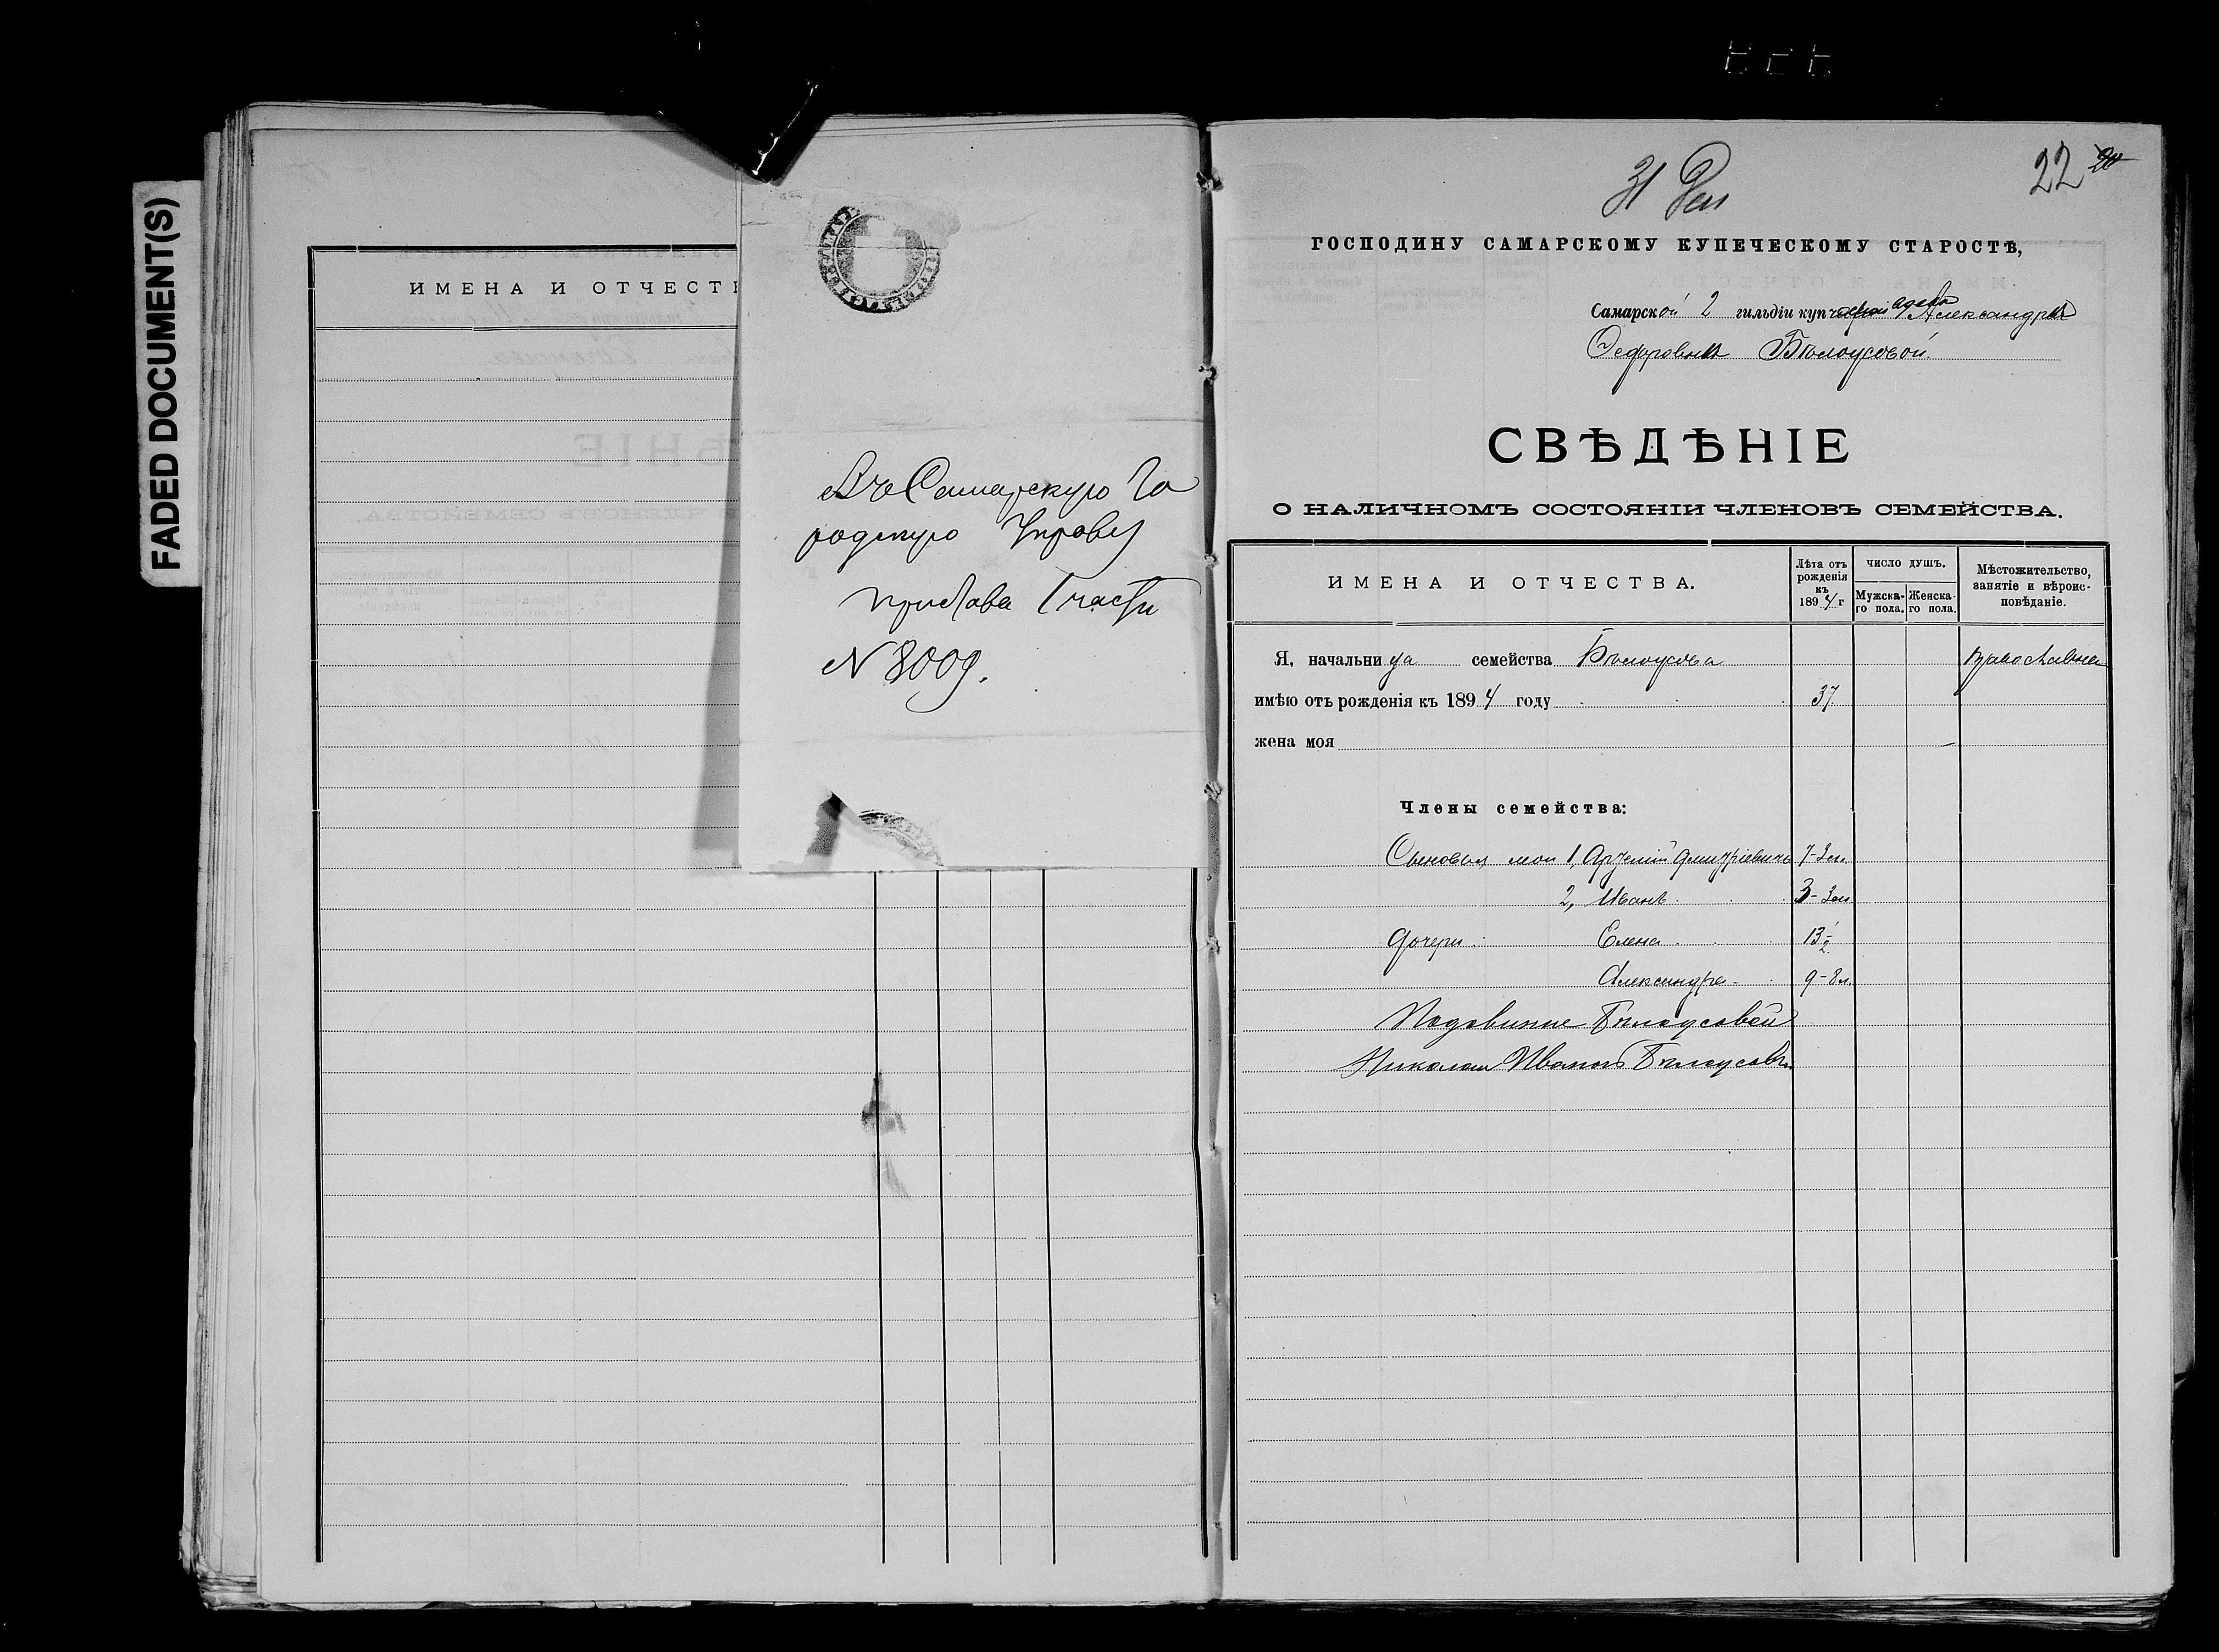 FADED DOCUMENT(S)
ИМЕНА И ОТЧЕСТ
Въ Самарскую Го
родскую Управу
Пристава 1 части
N 8009.
31 Дек
22 20
ГОСПОДИНУ САМАРСКОМУ КУПЕЧЕСКОМУ СТАРОСТѢ,
Самарской 2 гильдіи купч вдова Александры
Федоровны Бѣлоусовой.
СВѢДѢНІЕ
О НАЛИЧНОМЪ СОСТОЯНІИ ЧЛЕНОВЪ СЕМЕЙСТВА.
ИМЕНА И ОТЧЕСТВА.
Лѣта отъ рожденія къ 1894 г
ЧИСЛО ДУШЪ.
Мужска-го пола.
Женска-го пола.
Мѣстожительство, занятіе и вѣроис-повѣданіе.
Я, начальница семейства Бѣлоусова православна
имѣю отъ рожденія къ 1894 году 37
жена моя
Члены семейства:
Сыновья мои 1, Артемій Дмитріевичъ 7-3 м.
2, Иванъ 3-3 м
Дочери: Елена 13 1/2
Александра 9-8 м.
Бѣлоусовой
Николай Ивановъ Бѣлоусовъ